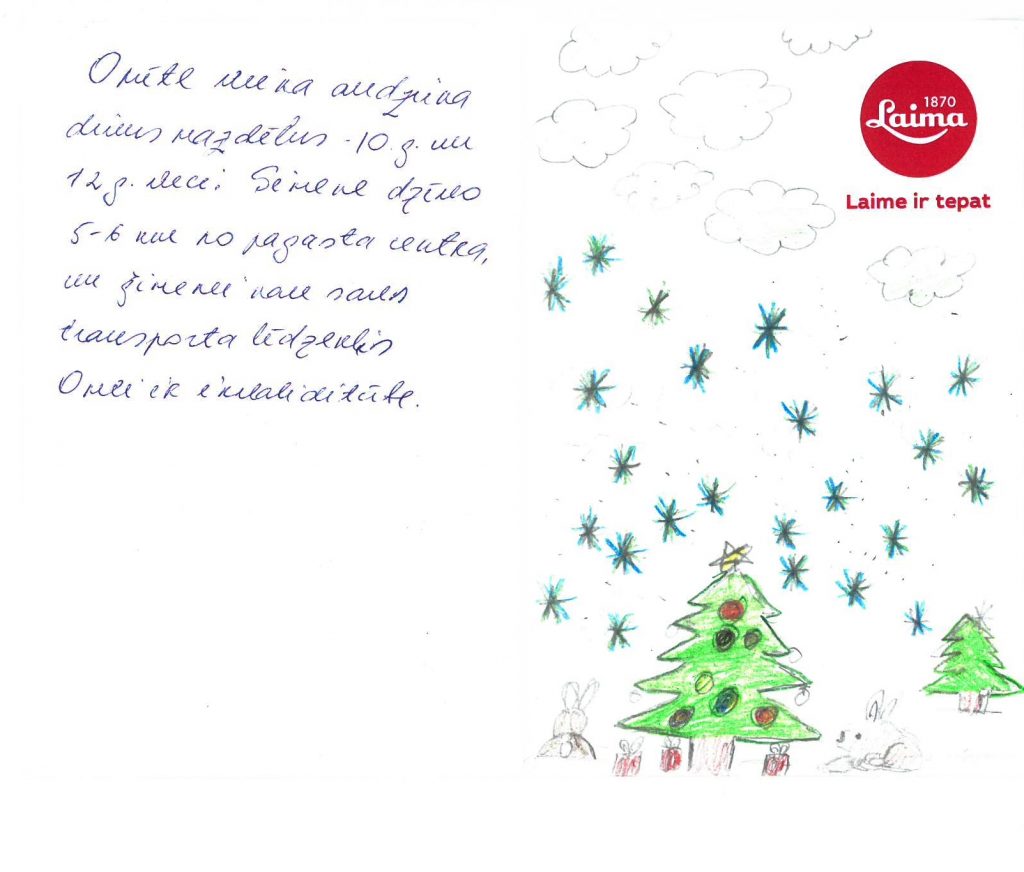 Omīte viena audzina
divus mazdēlus - 10.g. un
12 g. veci. Ģimene dzīvo
5-6 km no pagasta centra,
un ģimenei nav savs
transporta līdzeklis
Omei ir invaliditāte.
1870
Laima
Laime ir tepat